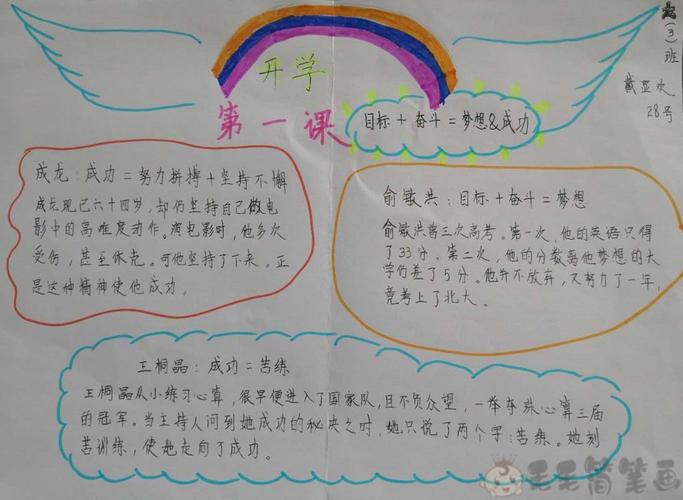 开学
第一课
目标+奋斗=梦想&成功
(3)班
28号
成龙:成功=努力拼搏+坚持不懈
成龙现已六十四岁,却仍坚持自己做电
影中的高难度动作。演电影时,他多次
受伤,甚至休克。可他坚持了下来,正
是这种精神使他成功。
俞敏洪:目标+奋斗=梦想
俞敏洪曾三次高考。第一次,他的英语只得
了33分。第二次,他的分数离他梦想的大
学仍差了5分。他并不放弃,又努力了一年,
竟考上了北大。
王桐晶:成功=苦练
王桐晶从小练习心算,很早便进入了国家队,且不负众望,一举夺珠心算三届
的冠军。当主持人问到她成功的秘诀之时,她只说了两个字:苦练。她刻
苦训练,使她走向了成功。
毛毛简笔画